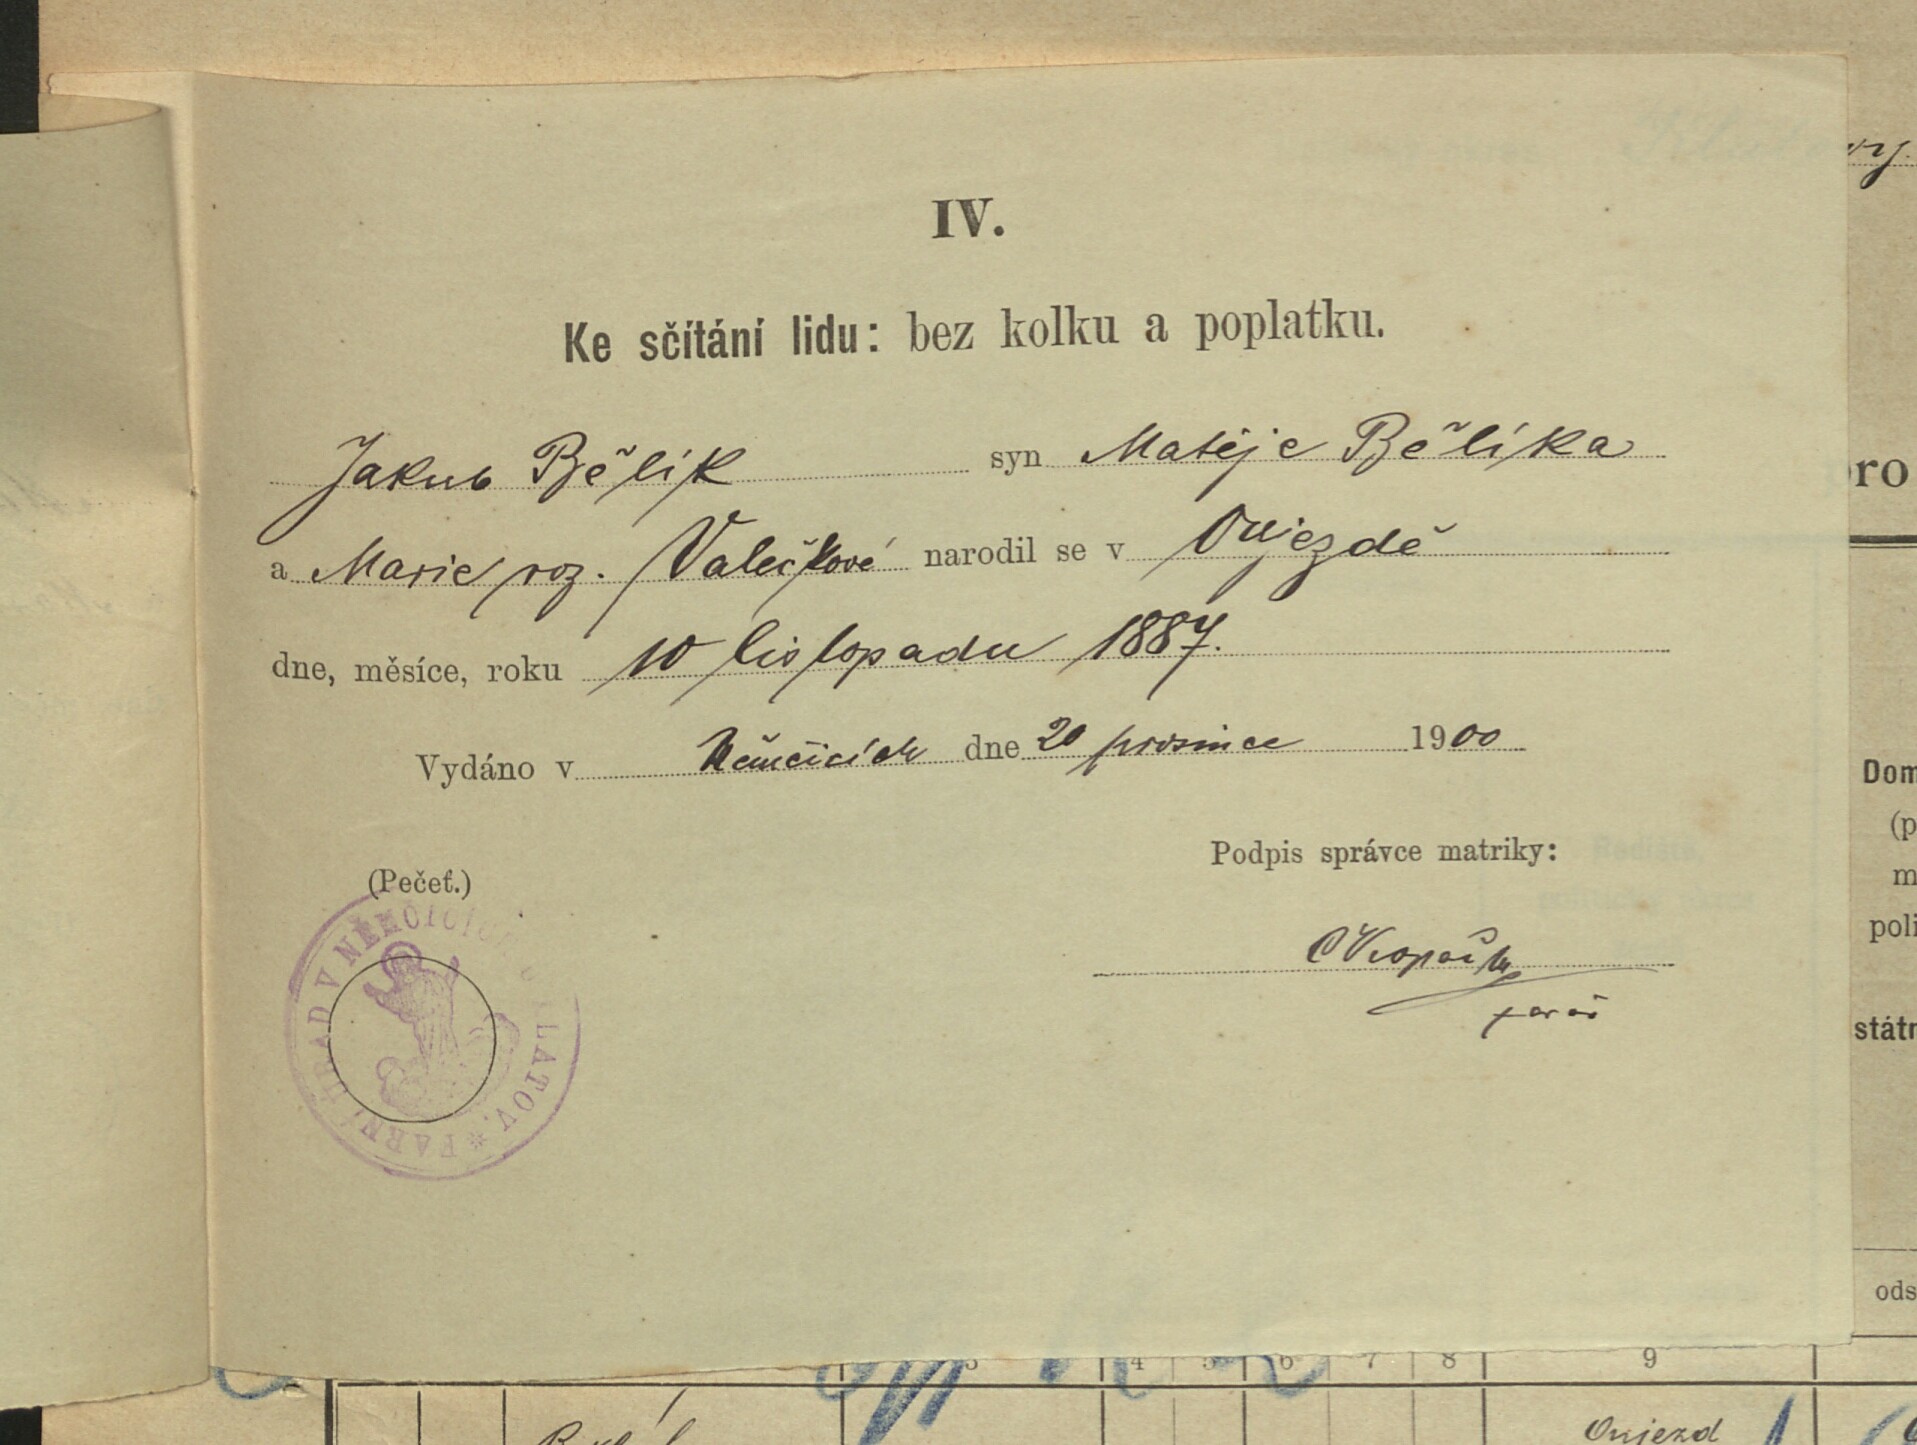 IV.
Ke sčítání lidu: bez kolku a poplatku.
Jakub Bělík syn Matěje Bělíka
a Marie roz. Valečkové narodil se v Oujezdě
dne, měsíce, roku 10 listopadu 1887.
Vydáno v Němčicích dne 20 prosince 1900
Podpis správce matriky:
(Pečeť.)
farář
FARNÍ ÚŘAD V NĚMČICÍCH KLATOV.
pro
Dom
(p
m
poli
státn
ods
3 4 5 6 7 8 9
Oujezd